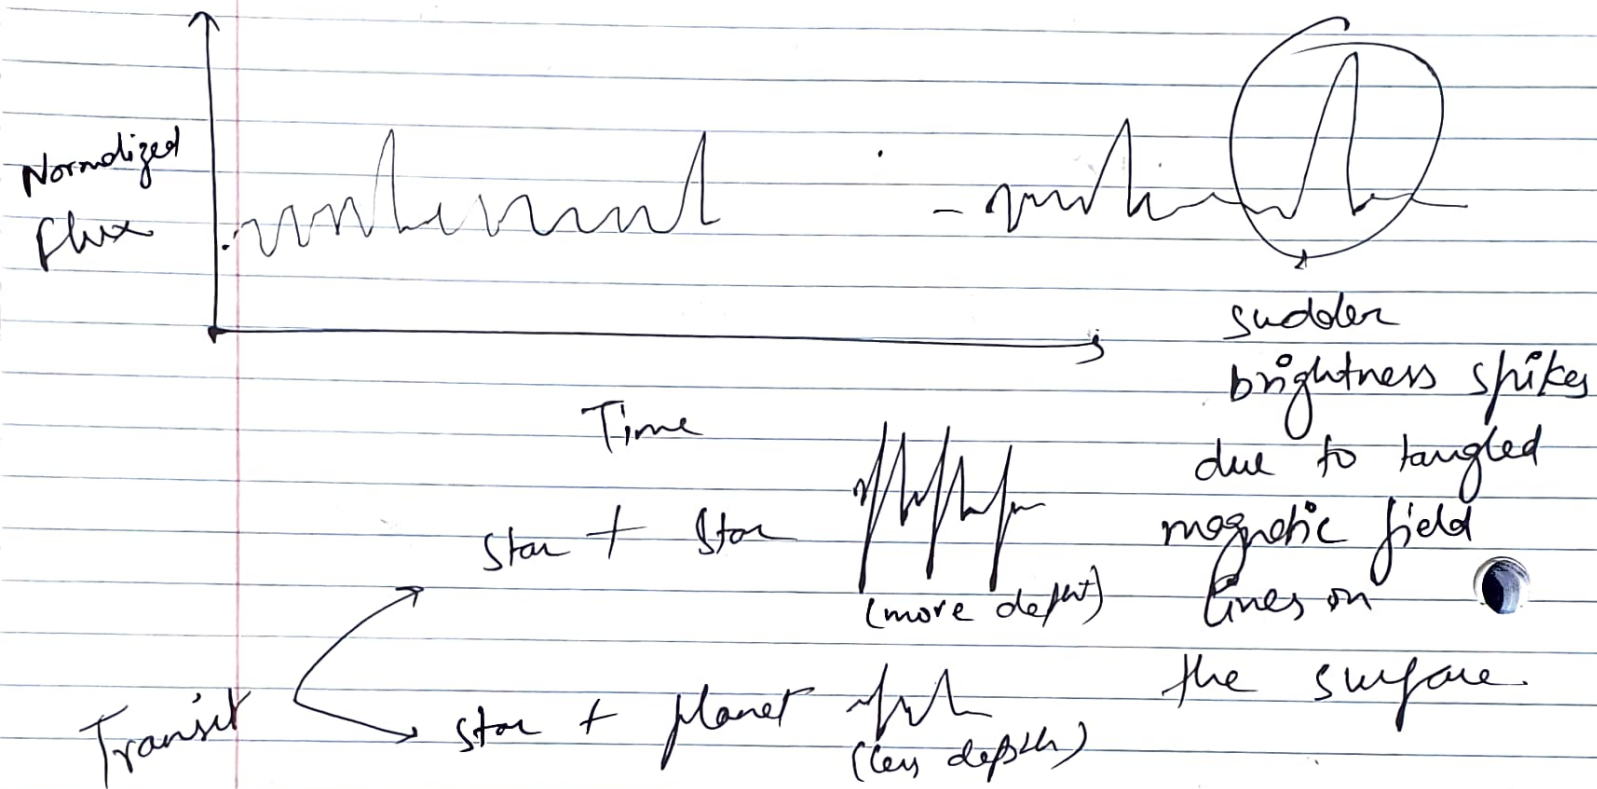 Normalized
flux
Time
sudden
brightness spikes
due to tangled
magnetic field
lines on
the surface.
Transit
star + star
(more depth)
star + planet
(less depth)